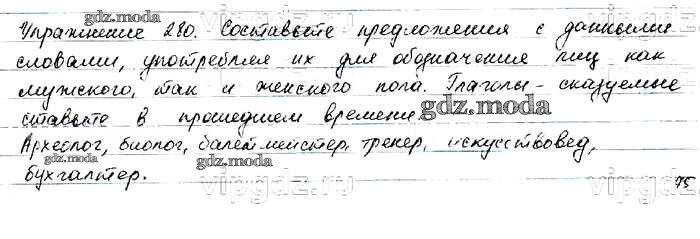 Упражнение 280. Составьте предложения с данными
gdz.moda
словами, употребляя их для обозначения лиц как
gdz.moda
мужского, так и женского пола. Глаголы - сказуемые
ставьте в прошедшем времени
gdz.moda
gdz.moda
Археолог, биолог, балетмейстер, тренер, искусствовед,
gdz.moda
бухгалтер.
vipgdz.ru
vipgdz.ru
75